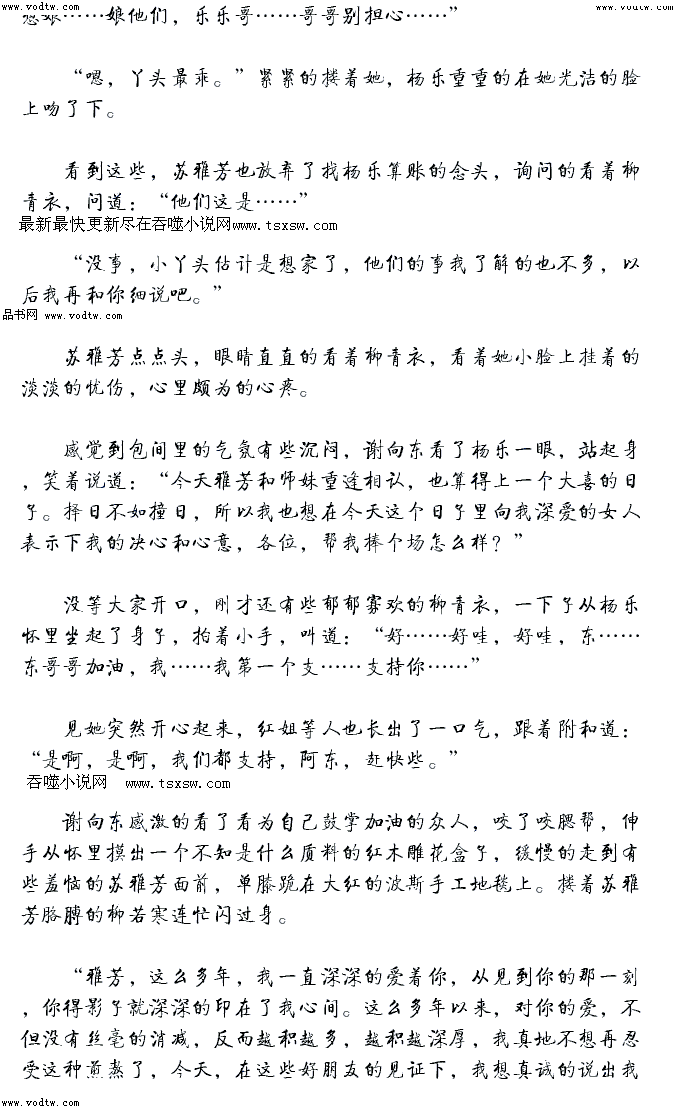 www.vodtw.com www.voutw.com
想娘……娘他们，乐乐哥……哥哥别担心……”
“嗯，丫头最乖。”紧紧的搂着她，杨乐重重的在她光洁的脸
上吻了下。
看到这些，苏雅芳也放弃了找杨乐算账的念头，询问的看着柳
青衣，问道：“他们这是……”
最新最快更新尽在吞噬小说网www.tsxsw.com
“没事，小丫头估计是想家了，他们的事我了解的也不多，以
后我再和你细说吧。”
品书网 www.vodtw.com
苏雅芳点点头，眼睛直直的看着柳青衣，看着她小脸上挂着的
淡淡的忧伤，心里颇为的心疼。
感觉到包间里的气氛有些沉闷，谢向东看了杨乐一眼，站起身
，笑着说道：“今天雅芳和师妹重逢相认，也算得上一个大喜的日
子。择日不如撞日，所以我也想在今天这个日子里向我深爱的女人
表示下我的决心和心意，各位，帮我捧个场怎么样？”
没等大家开口，刚才还有些郁郁寡欢的柳青衣，一下子从杨乐
怀里坐起了身子，拍着小手，叫道：“好……好哇，好哇，东……
东哥哥加油，我……我第一个支……支持你……”
见她突然开心起来，红姐等人也长出了一口气，跟着附和道：
“是啊，是啊，我们都支持，阿东，赶快些。”
吞噬小说网 www.tsxsw.com
谢向东感激的看了看为自己鼓掌加油的众人，咬了咬腮帮，伸
手从怀里摸出一个不知是什么质料的红木雕花盒子，缓慢的走到有
些羞恼的苏雅芳面前，单膝跪在大红的波斯手工地毯上。搂着苏雅
芳胳膊的柳若寒连忙闪过身。
“雅芳，这么多年，我一直深深的爱着你，从见到你的那一刻
，你得影子就深深的印在了我心间。这么多年以来，对你的爱，不
但没有丝毫的消减，反而越积越多，越积越深厚，我真地不想再忍
受这种煎熬了，今天，在这些好朋友的见证下，我想真诚的说出我
www.vodtw.com